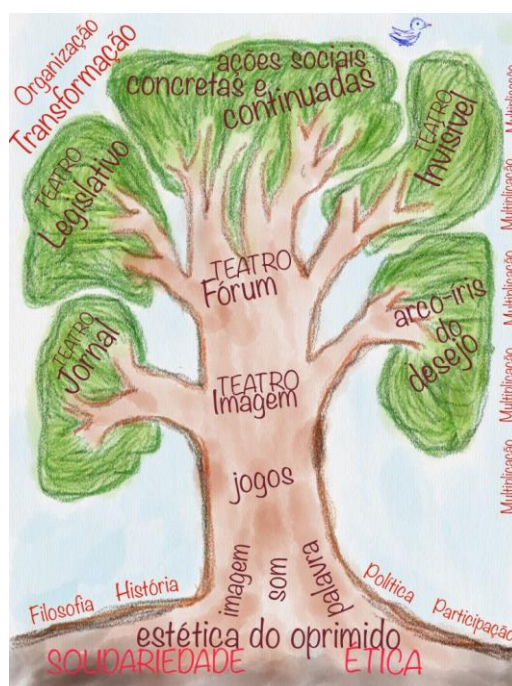 Organização
Transformação
ações sociais
concretas e
continuadas
TEATRO
Legislativo
TEATRO
Invisível
TEATRO
Fórum
TEATRO
Jornal
arco-íris
do
desejo
TEATRO
Imagem
jogos
imagem
som
palavra
Filosofia
História
Política
Participação
estética do oprimido
SOLIDARIEDADE
ÉTICA
Multiplicação
Multiplicação
Multiplicação
Multiplicação
Multiplicação